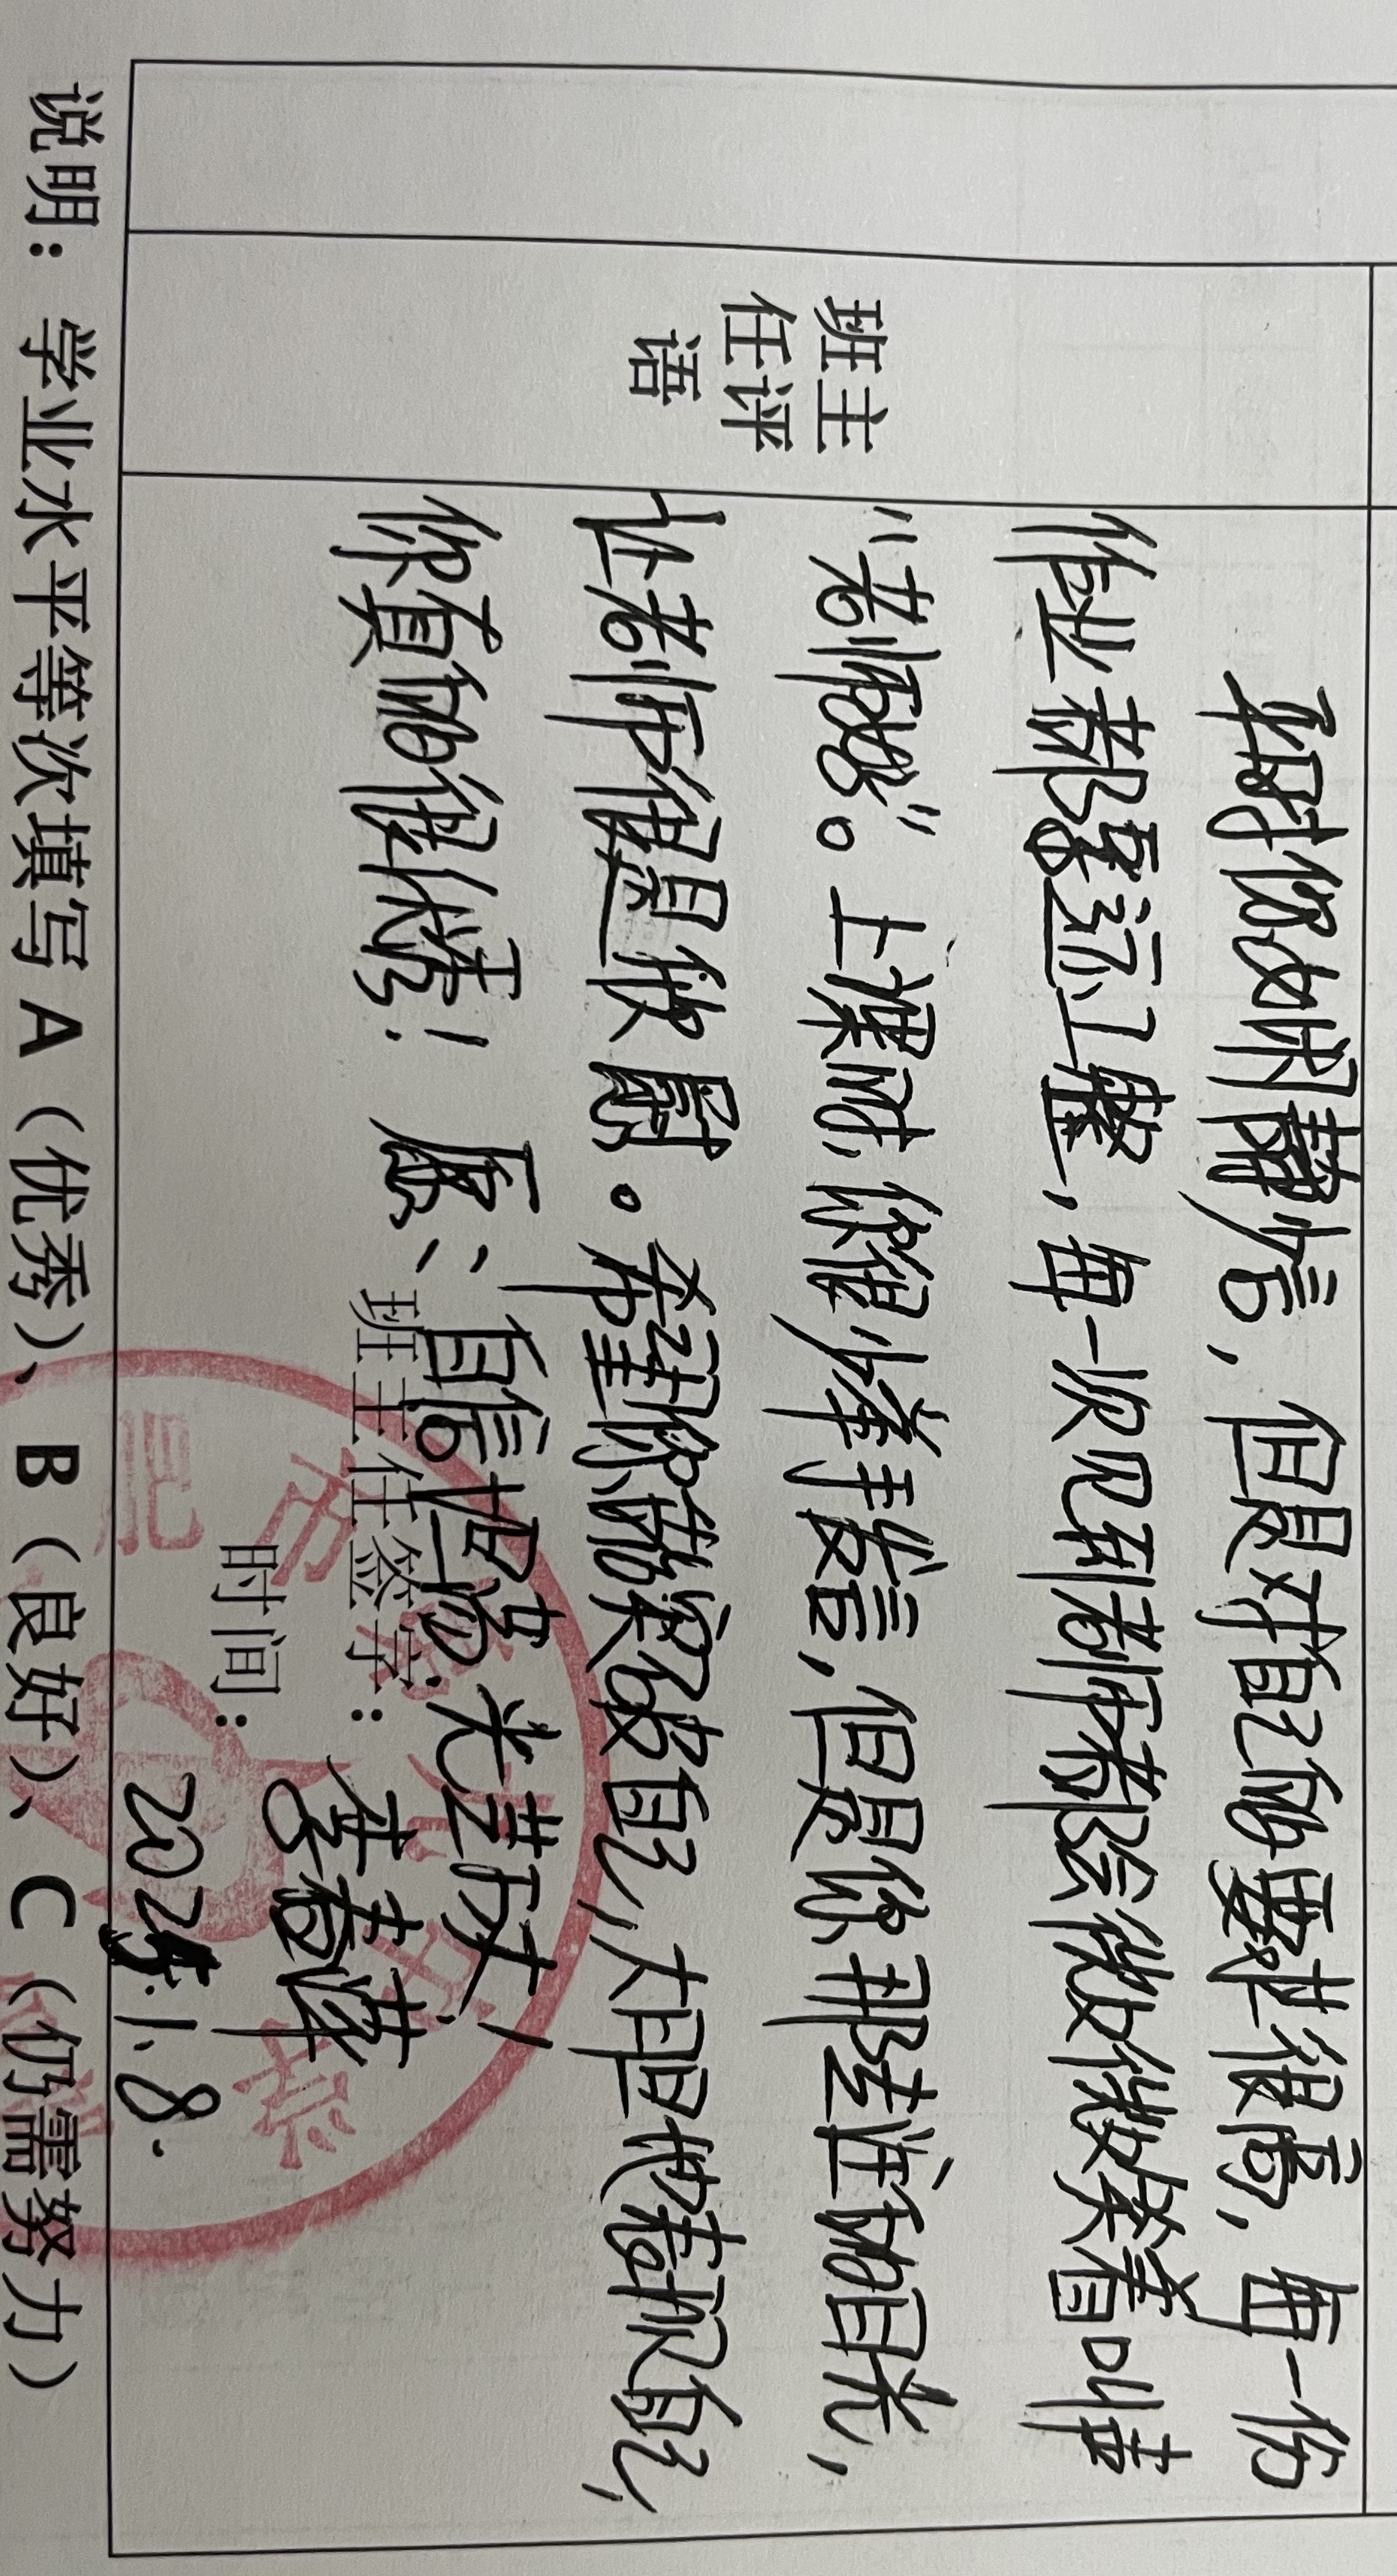 班主
任评
语
平时你文静寡言，但是对自己的要求很高，每一份
作业都要这工整，每一次见到老师都会微微笑着叫声
“老师好”。上课时你很少举手发言，但是你那专注的目光，
让老师很是欣慰。希望你繁荣自己，大胆地表现自己，
你真的很优秀！愿：自信飞扬，光芒万丈！
班主任签字：李春萍
时间：2025.1.8.
说明：学业水平等次填写 A（优秀）、B（良好）、C（仍需努力）